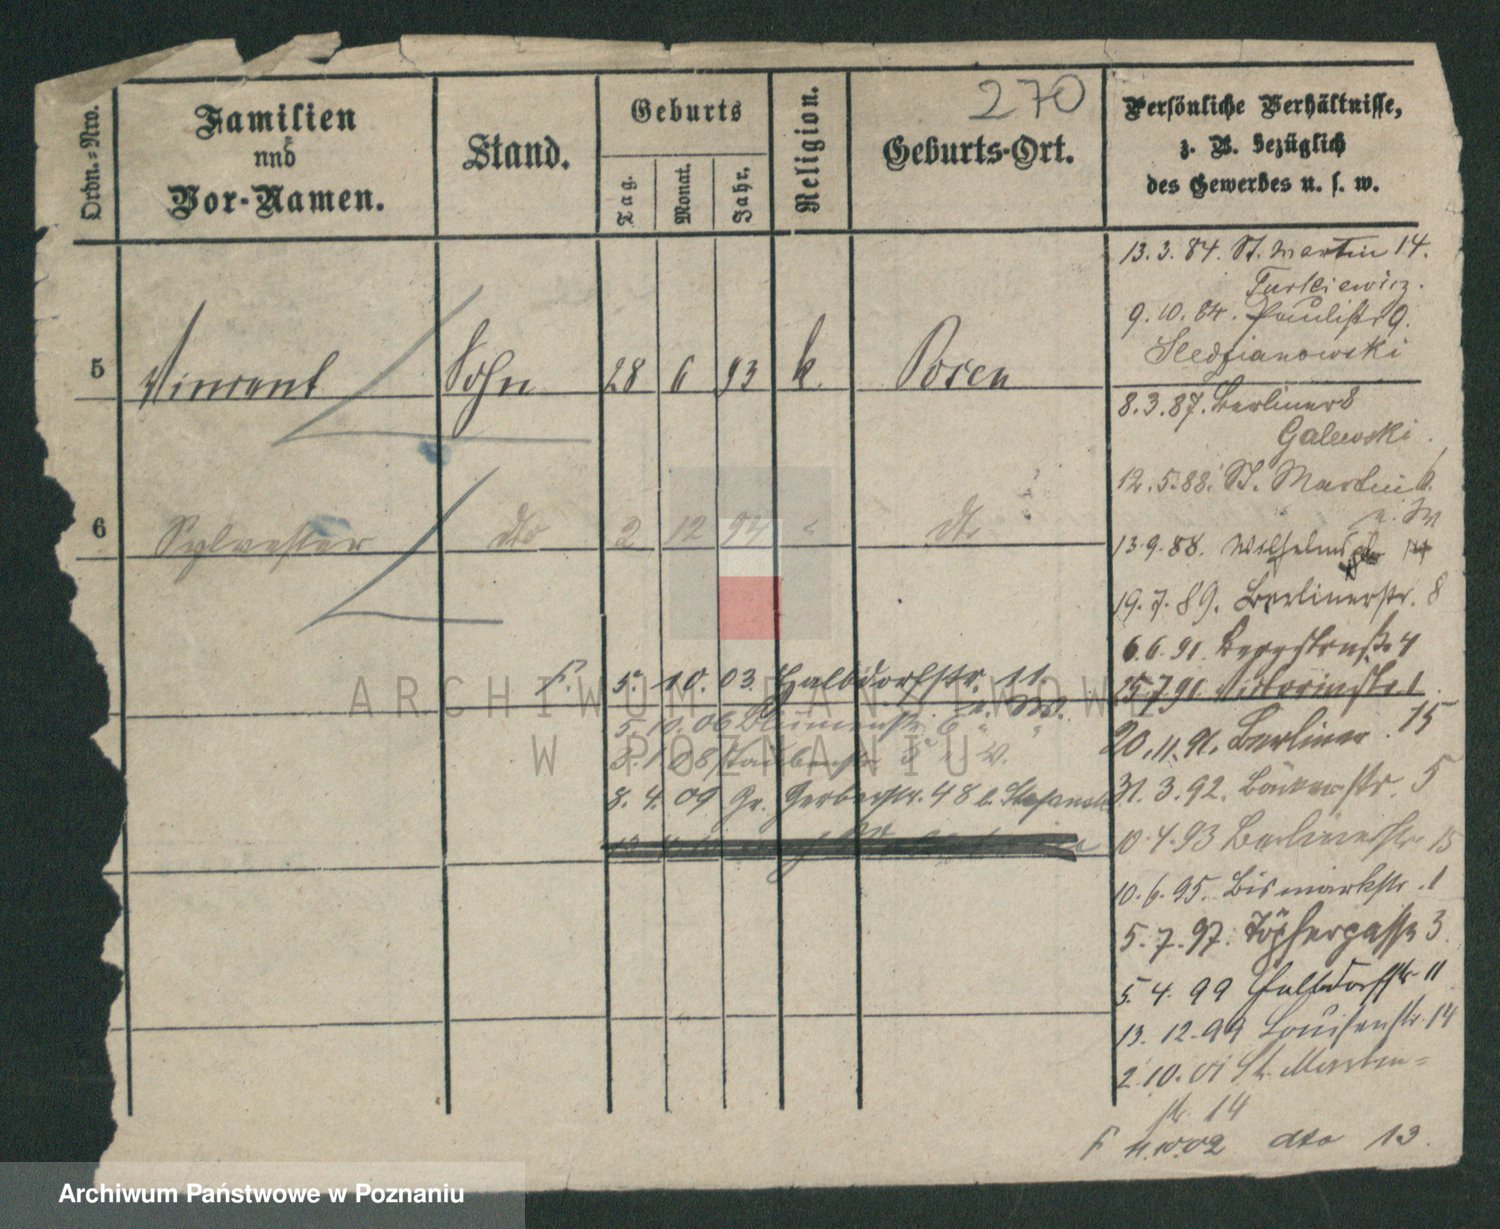 270
Ordn.=Nro.
Familien
und
Vor-Namen.
Stand.
Geburts
Tag.
Monat.
Jahr.
Religion.
Geburts-Ort.
Persönliche Verhältnisse,
z. B. bezüglich
des Gewerbes u. s. w.
5 Vincent Sohn 28 6 93 k. Posen
6 Sylvester dto 2 12 94 " dto
13.3.84. St. Martin 14.
Turkiewicz.
9.10.84. Paulistr 9.
Sledzianowski
8.3.87. Berliner 8
Galewski.
12.5.88. St. Martin 6.
u. W
13.9.88. Wilhelms
19.7.89. Berlinerstr. 8
6.6.91. Bergstraße 4
15.7.91 Victoriastr. 1
20.11.91. Berliner. 15
31.3.92. Bäckerstr. 5
10.4.93 Berlinerstr 15
10.6.95. Bismarkstr. 1
5.7.97. Töpfergasse 3
5.4.99 Halbdorfstr 11
13.12.99 Louisenstr. 14
2.10.01 St. Martin=
str. 14
F 4.10.02 dto 13.
F. 5. 10. 03 Halbdorfstr. 11.
u. W.
5. 10. 06 Blumenstr. 6
3. 1. 08 Taubenstr 5 u. W.
8. 4. 09 Gr. Gerberstr. 48 b. Stefanski
ARCHIWUM PAŃSTWOWE
W POZNANIU
Archiwum Państwowe w Poznaniu